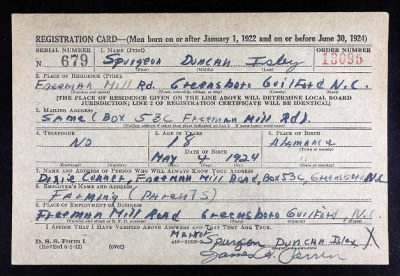 REGISTRATION CARD—(Men born on or after January 1, 1922 and on or before June 30, 1924)
SERIAL NUMBER 1. NAME (Print) ORDER NUMBER
N 679 Spurgeon Duncan Isley 13095
(First) (Middle) (Last)
2. PLACE OF RESIDENCE (Print)
Freeman Mill Rd. Greensboro Guilford N.C.
[THE PLACE OF RESIDENCE GIVEN ON THE LINE ABOVE WILL DETERMINE LOCAL BOARD
JURISDICTION; LINE 2 OF REGISTRATION CERTIFICATE WILL BE IDENTICAL]
3. MAILING ADDRESS
Same (Box 53C Freeman Mill Rd).
4. TELEPHONE 5. AGE IN YEARS 6. PLACE OF BIRTH
NO 18 Alamance
DATE OF BIRTH
May 4 1924
7. NAME AND ADDRESS OF PERSON WHO WILL ALWAYS KNOW YOUR ADDRESS
Freeman Mill Road, Box 53C, Greensboro N.C.
8. EMPLOYER'S NAME AND ADDRESS
Farming (Parents)
9. PLACE OF EMPLOYMENT OR BUSINESS
Freeman Mill Road Greensboro Guilford N.C.
I AFFIRM THAT I HAVE VERIFIED ABOVE ANSWERS AND THAT THEY ARE TRUE.
D. S. S. Form 1
(Revised 6-9-42) (over)
Spurgeon Duncan Isley X